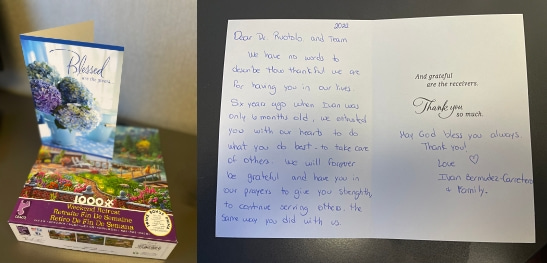 Blessed
are the givers
1000
Weekend Retreat
Retraite Fin De Semaine
Retiro De Fin De Semana
2022
Dear Dr. Ruotolo and Team
We have no words to
describe How thankful we are
for having you in our lives.
Six years ago when Ivan was
only 6 months old, we entrusted
you with our hearts to do
what you do best - to take care
of others. We will forever
be grateful and have you in
our prayers to give you strength
to continue serving others the
same way you did with us.
And grateful
are the receivers.
Thank you
so much.
May God bless you always.
Thank you!
Love
Ivan Bermudez-
+ Family.